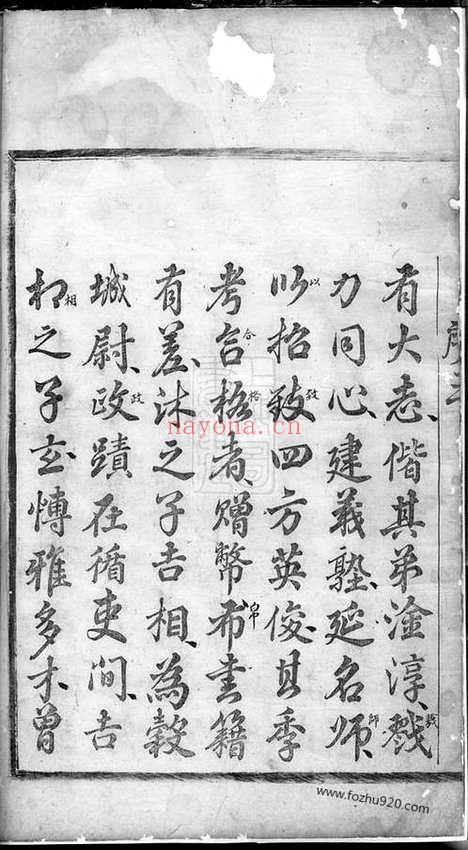 有大志偕其弟淦淳戮
力同心建義塾延名師
以招致四方英俊其季
考合格者贈幣帛書籍
有差沐之子吉相為穀
城尉政蹟在循吏間吉
相之子玄愽雅多才曾
戮
師
以
致
合
格
帛
政
相
序
nayona.cn
www.fozhu920.com